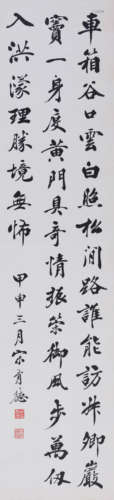 車箱谷口雲白照松澗路誰能訪叔卿巖
竇一身度黃門具奇情張縈御風步萬仭
入洪濛理勝境無怖
甲申三月宗育德